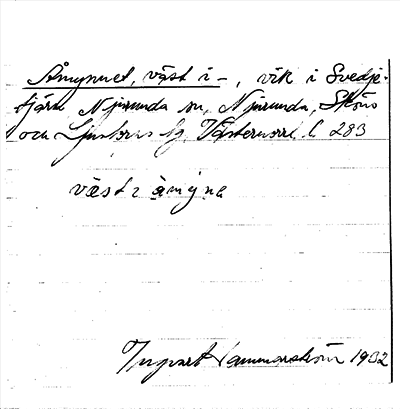 Åmynnet, väst i -, vik i Svedje-
tjärn Njurunda sn, Njurunda, Sköns
och Ljustorps tg, Västernorrl. l 283
väst i åmyne
Ingvart Hammarström 1932